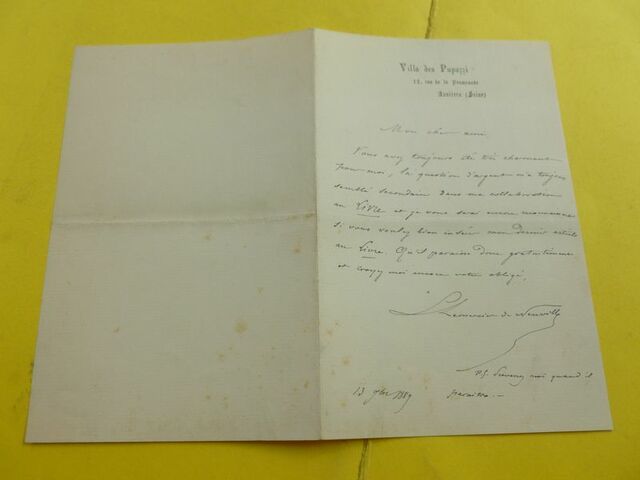 Villa des Pupazzi
12, rue de la Promenade
Asnières (Seine)
Mon cher ami
Vous avez toujours été très charmant
pour moi, la question d'argent m'a toujours
semblé secondaire dans ma collaboration
au Livre et je vous serai encore reconnaissant
si vous voulez bien insérer mon dernier article
au Livre. Qu'il paraisse donc gratuitement
et croyez moi encore votre obligé,
L Lemercier de Neuville
P.S. Prévenez moi quand il
paraitra.-
13 9bre 1889